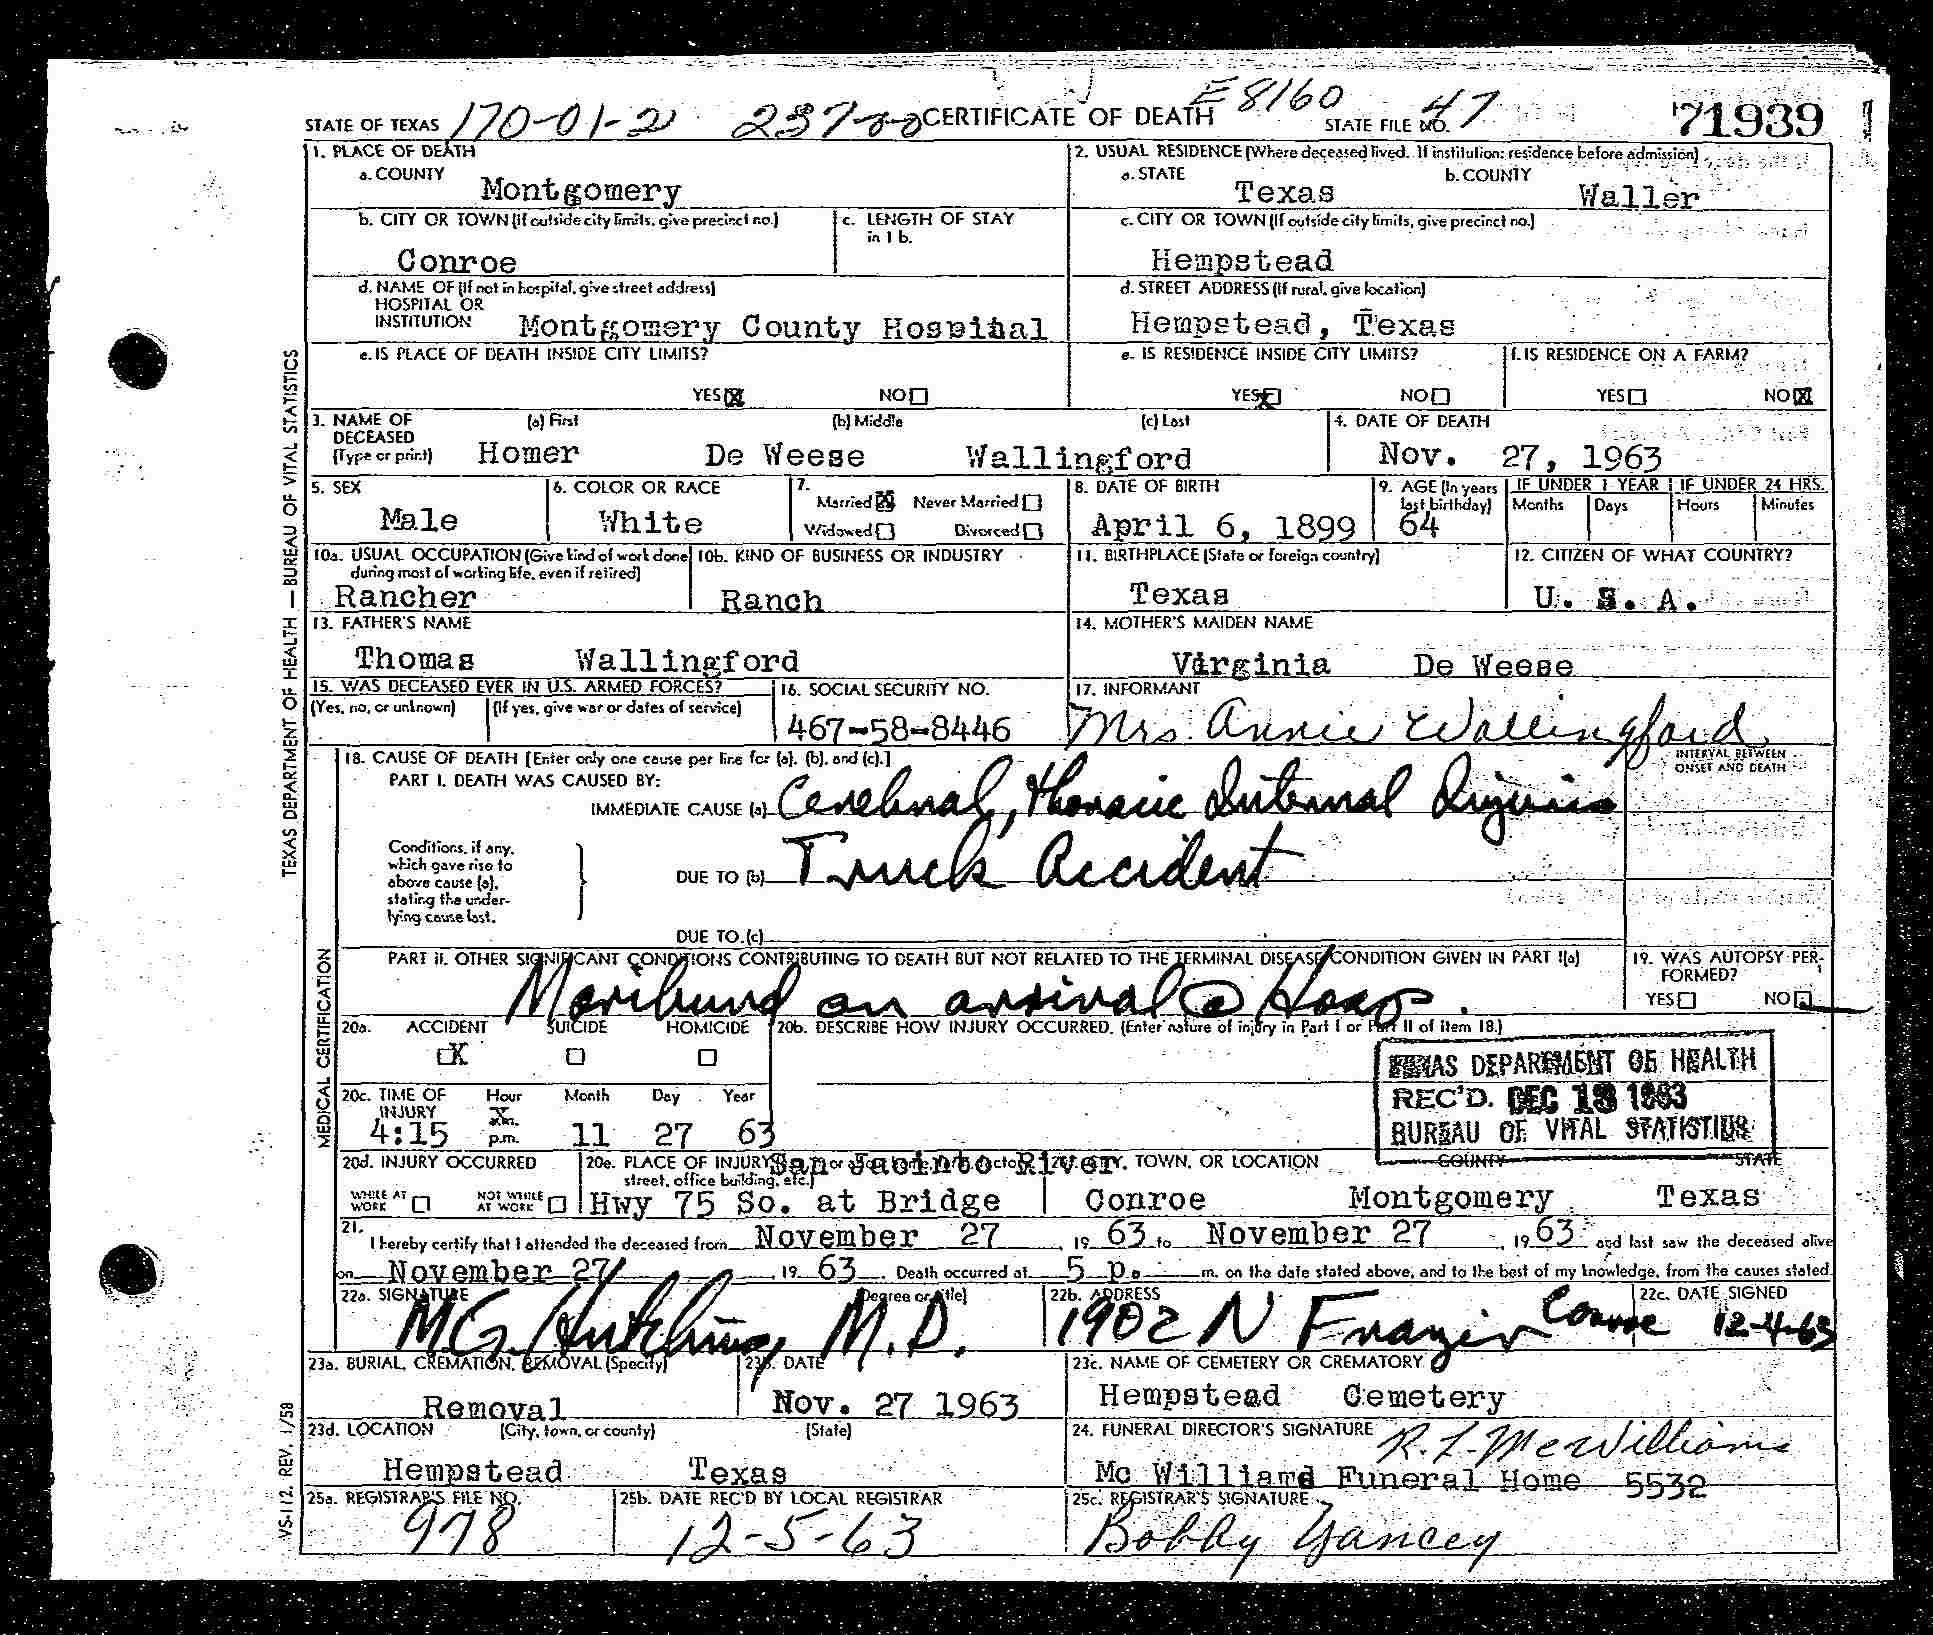 STATE OF TEXAS 170-01-2 237-20 CERTIFICATE OF DEATH E 8160 STATE FILE NO. 47 71939
1. PLACE OF DEATH
a. COUNTY Montgomery
2. USUAL RESIDENCE (Where deceased lived. If institution: residence before admission)
a. STATE Texas b. COUNTY Waller
b. CITY OR TOWN (If outside city limits, give precinct no.) Conroe
c. LENGTH OF STAY in 1 b.
c. CITY OR TOWN (If outside city limits, give precinct no.) Hempstead
d. NAME OF (If not in hospital, give street address) HOSPITAL OR INSTITUTION Montgomery County Hospital
d. STREET ADDRESS (If rural, give location) Hempstead, Texas
e. IS PLACE OF DEATH INSIDE CITY LIMITS? YES X NO
e. IS RESIDENCE INSIDE CITY LIMITS? YES X NO
f. IS RESIDENCE ON A FARM? YES NO X
3. NAME OF DECEASED (Type or print) (a) First Homer (b) Middle De Weese (c) Last Wallingford
4. DATE OF DEATH Nov. 27, 1963
5. SEX Male
6. COLOR OR RACE White
7. Married X Never Married Widowed Divorced
8. DATE OF BIRTH April 6, 1899
9. AGE (In years last birthday) 64
IF UNDER 1 YEAR Months Days
IF UNDER 24 HRS. Hours Minutes
10a. USUAL OCCUPATION (Give kind of work done during most of working life, even if retired) Rancher
10b. KIND OF BUSINESS OR INDUSTRY Ranch
11. BIRTHPLACE (State or foreign country) Texas
12. CITIZEN OF WHAT COUNTRY? U. S. A.
13. FATHER'S NAME Thomas Wallingford
14. MOTHER'S MAIDEN NAME Virginia De Weese
15. WAS DECEASED EVER IN U.S. ARMED FORCES? (Yes, no, or unknown) (If yes, give war or dates of service)
16. SOCIAL SECURITY NO. 467-58-8446
17. INFORMANT Mrs. Annie Wallingford
18. CAUSE OF DEATH [Enter only one cause per line for (a), (b), and (c).]
INTERVAL BETWEEN ONSET AND DEATH
PART I. DEATH WAS CAUSED BY:
IMMEDIATE CAUSE (a) Cerebral, Thoracic Internal Injuries
Conditions, if any, which gave rise to above cause (a), stating the under-lying cause last.
DUE TO (b) Truck Accident
DUE TO (c)
PART II. OTHER SIGNIFICANT CONDITIONS CONTRIBUTING TO DEATH BUT NOT RELATED TO THE TERMINAL DISEASE CONDITION GIVEN IN PART I(a)
Moribund on arrival @ Hosp.
19. WAS AUTOPSY PERFORMED? YES NO
20a. ACCIDENT X SUICIDE HOMICIDE
20b. DESCRIBE HOW INJURY OCCURRED. (Enter nature of injury in Part I or Part II of item 18.)
TEXAS DEPARTMENT OF HEALTH
REC'D. DEC 13 1963
BUREAU OF VITAL STATISTICS
20c. TIME OF INJURY Hour 4:15 p.m. Month 11 Day 27 Year 63
20d. INJURY OCCURRED WHILE AT WORK NOT WHILE AT WORK
20e. PLACE OF INJURY street, office building, etc.) San Jacinto River Hwy 75 So. at Bridge
TOWN, OR LOCATION Conroe COUNTY Montgomery STATE Texas
21. I hereby certify that I attended the deceased from November 27, 19 63 to November 27, 19 63 and last saw the deceased alive
on November 27, 19 63. Death occurred at 5 p. m. on the date stated above, and to the best of my knowledge, from the causes stated.
22a. SIGNATURE (Degree or title) M.G. Hutchins, M.D.
22b. ADDRESS 1902 N Frazier Conroe
22c. DATE SIGNED 12-4-63
23a. BURIAL, CREMATION, REMOVAL (Specify) Removal
23b. DATE Nov. 27 1963
23c. NAME OF CEMETERY OR CREMATORY Hempstead Cemetery
23d. LOCATION (City, town, or county) Hempstead (State) Texas
24. FUNERAL DIRECTOR'S SIGNATURE R.L. McWilliams
Mc Williams Funeral Home 5532
25a. REGISTRAR'S FILE NO. 978
25b. DATE REC'D BY LOCAL REGISTRAR 12-5-63
25c. REGISTRAR'S SIGNATURE Bobby Yancey
TEXAS DEPARTMENT OF HEALTH — BUREAU OF VITAL STATISTICS
MEDICAL CERTIFICATION
VS-112, REV. 1/58